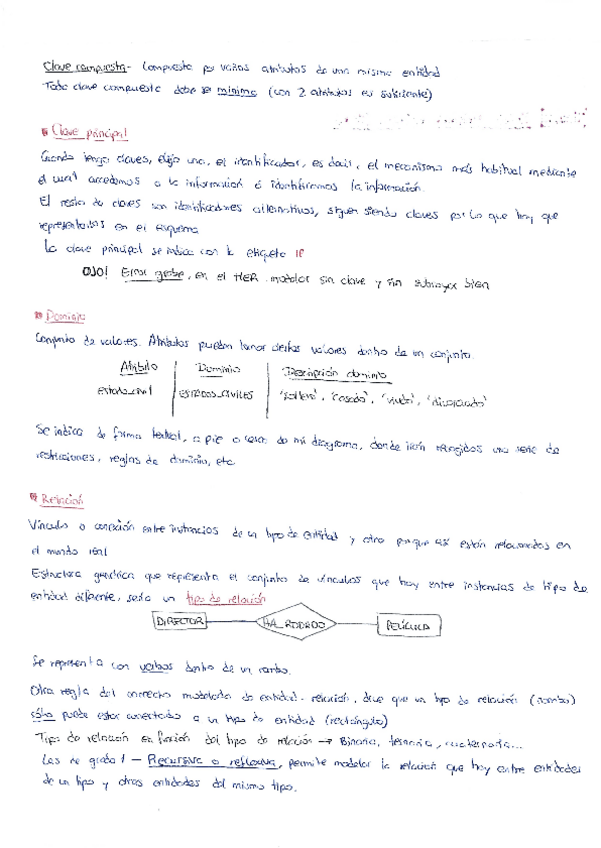 Clave compuesta - Compuesta por varios atributos de una misma entidad
Toda clave compuesta debe ser mínima (con 2 atributos es suficiente)
Clave principal
Cuando tengo claves, elijo una, el identificador, es decir, el mecanismo más habitual mediante
el cual accedemos a la información o identificamos la información.
El resto de claves son identificadores alternativos, siguen siendo claves por lo que hay que
representarlos en el esquema
La clave principal se indica con la etiqueta
OJO! Error grabe, en el MER modelar sin clave y sin subrayar bien
Dominio
Conjunto de valores. Atributos pueden tomar ciertos valores dentro de un conjunto.
Atributo Dominio Descripción dominio
estado_civil ESTADOS_CIVILES 'soltero', 'casado', 'viudo', 'divorciado'
Se indica de forma textual, a pie o cerca de mi diagrama, donde irán recogidos una serie de
restricciones, reglas de dominio, etc.
Relación
Vínculo o conexión entre instancias de un tipo de entidad y otro porque así están relacionados en
el mundo real
Estructura genérica que representa el conjunto de vínculos que hay entre instancias de tipo de
entidad diferente, sería un tipo de relación
DIRECTOR HA_RODADO PELÍCULA
Se representa con verbos dentro de un rombo.
Otra regla del correcto modelado de entidad-relación, dice que un tipo de relación (rombo)
sólo puede estar conectado a un tipo de entidad (rectángulo)
Tipo de relación en función del tipo de relación → Binaria, ternaria, cuaternaria...
Las de grado 1 - Recursiva o reflexiva, permite modelar la relación que hay entre entidades
de un tipo y otras entidades del mismo tipo.